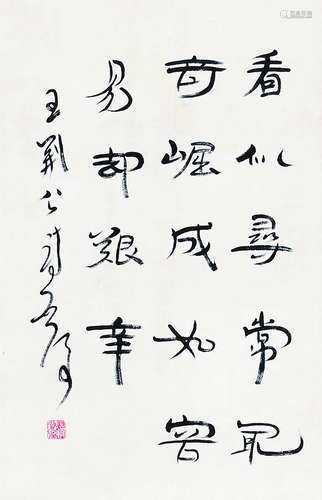 看似尋常最
奇崛成如容
易却艱辛
王荊公詩